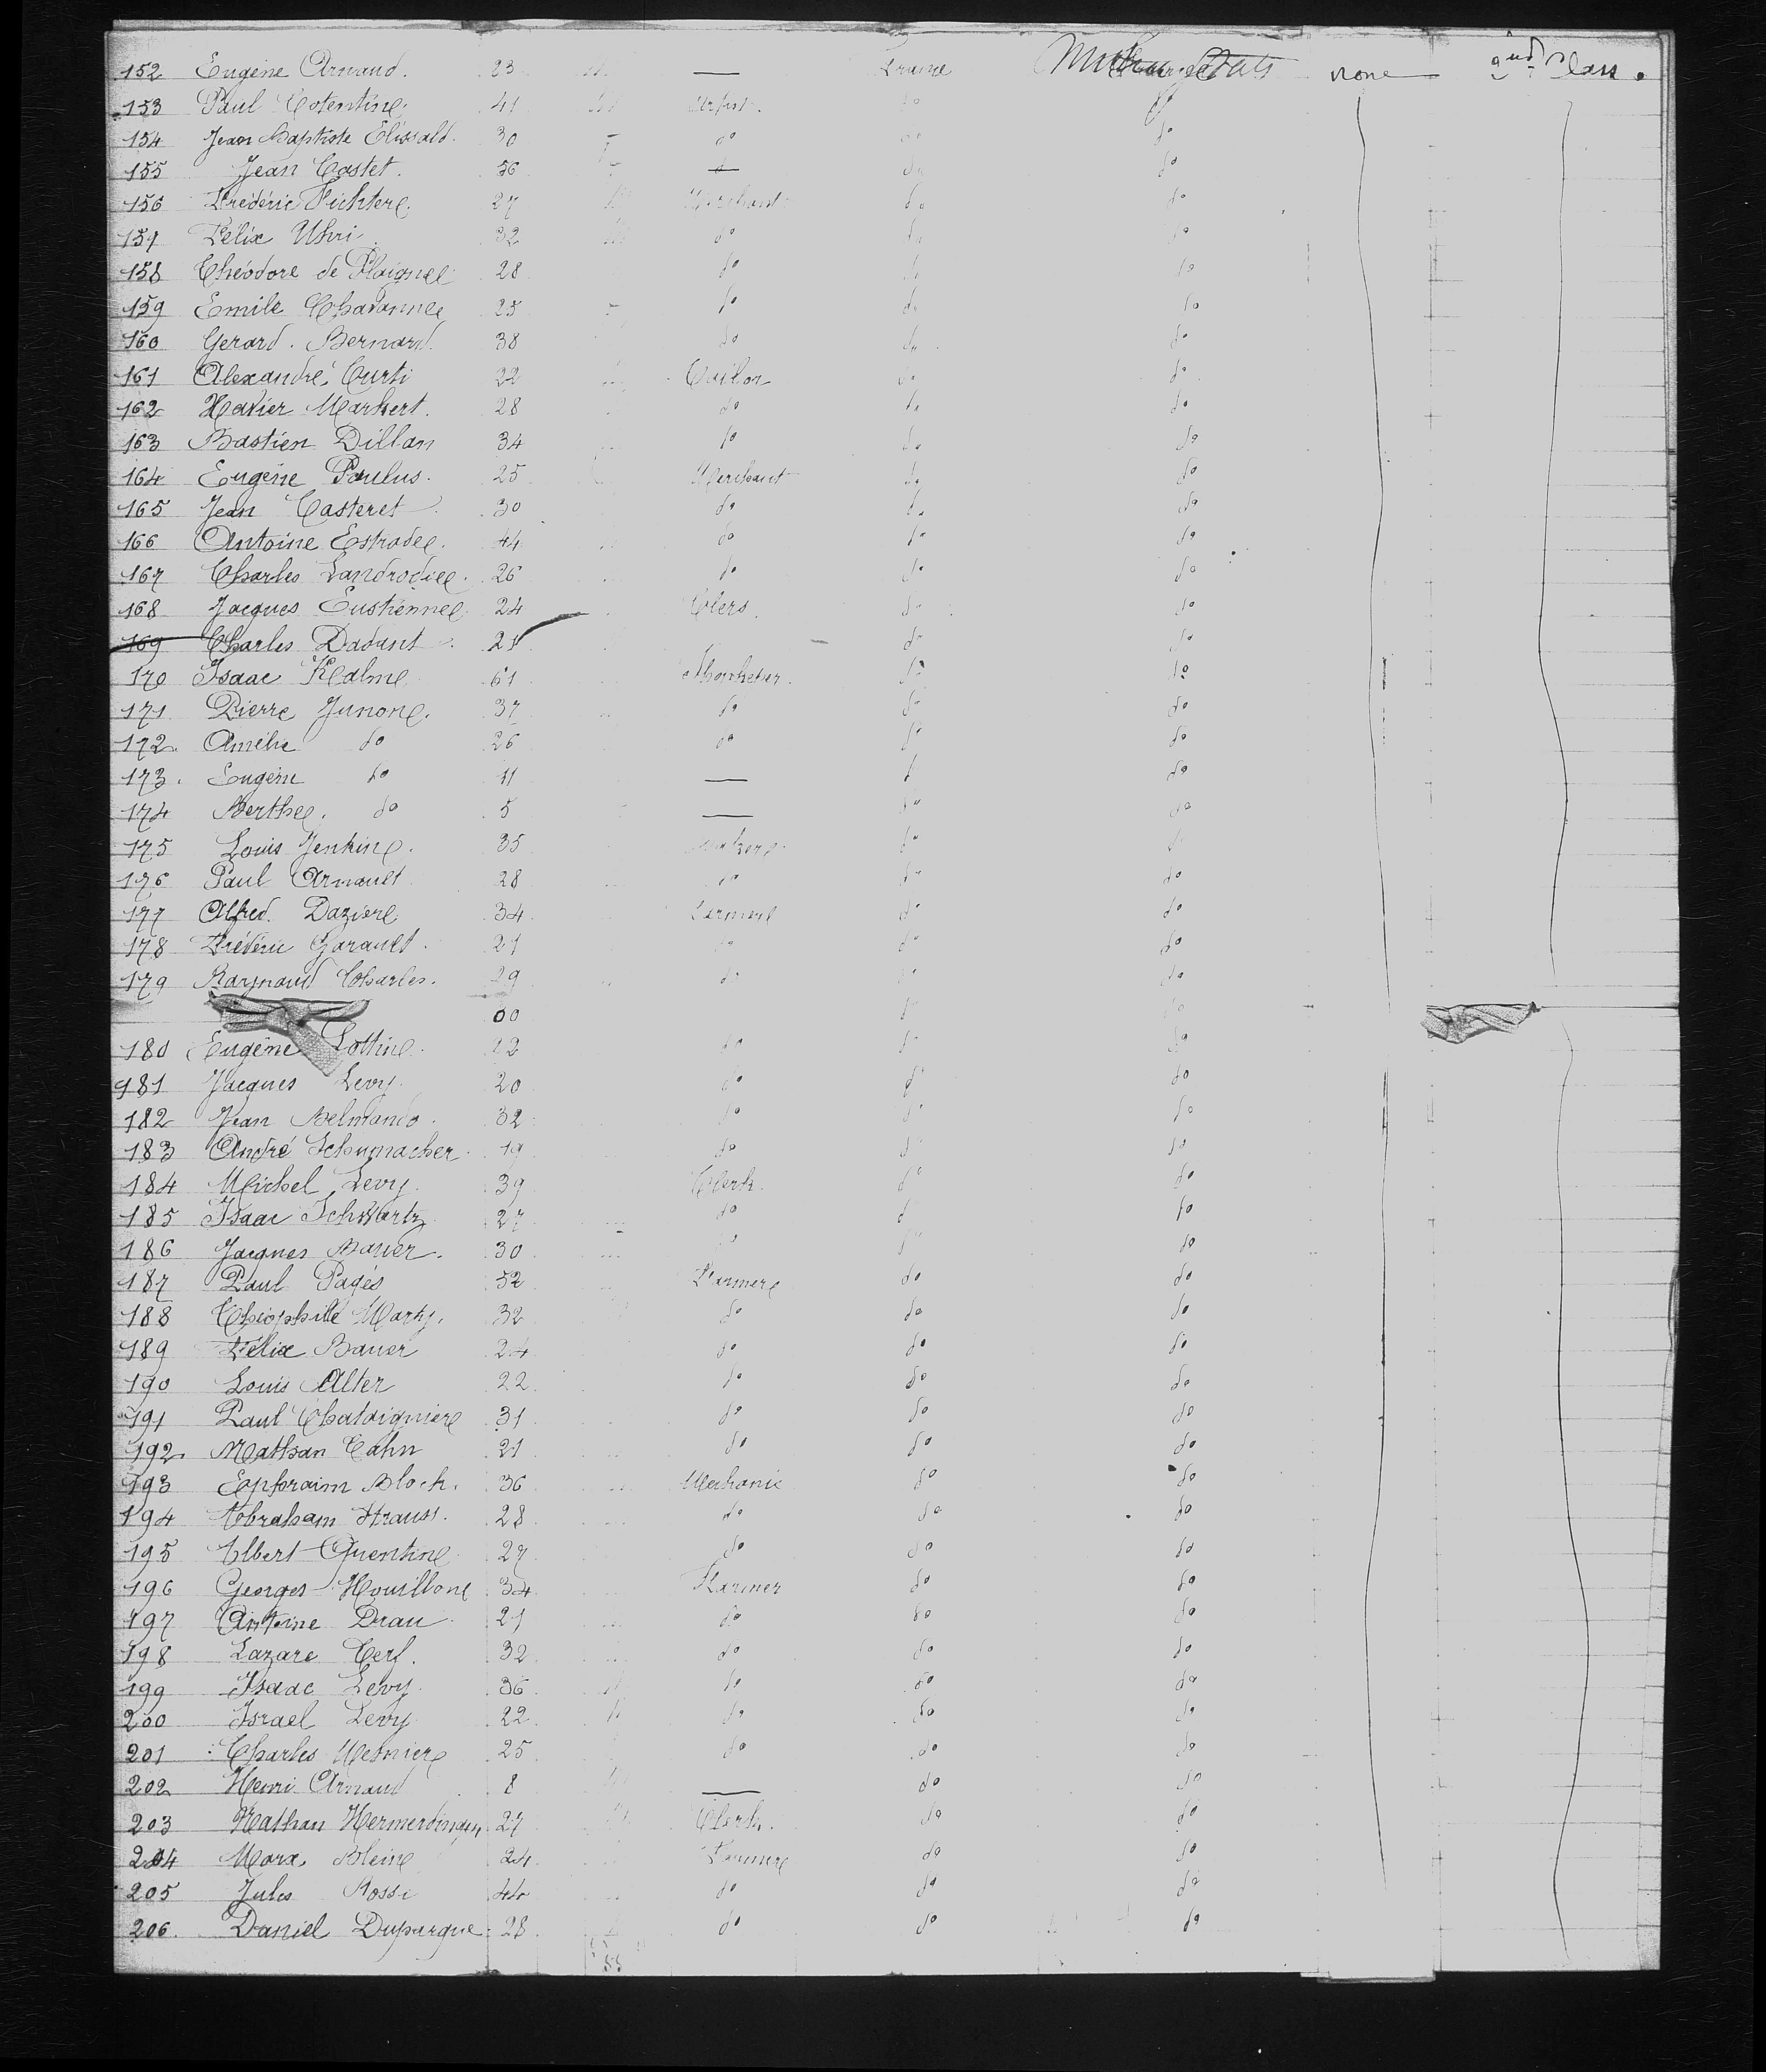 152 Eugène Arnaud. 23 — France United States none 2nd Class.
153 Paul Cotentin 41 Artist. do do
154 Jean Baptiste Elissald. 30 do do do
155 Jean Castet. 56 do do
156 Frédéric Richter 27 Merchant do do
157 Félix Uhri 32 do do do
158 Théodore de Plaigne 28 do do do
159 Emile Chavanne 25 do do do
160 Gerard. Bernard. 38 do do do
161 Alexandre Curti 22 Tailor do do
162 Xavier Markert. 28 do do do
163 Bastien Dillan 34 do do do
164 Eugène Paulus. 25 Merchant do do
165 Jean Casteret 30 do do do
166 Antoine Estrade. 44 do do do
167 Charles Landrodie. 26 do do do
168 Jacques Eustienne 24 Clers. do do
169 Charles Dadant. 21 do do
170 Isaac Kalme 61 do do
171 Pierre Junone. 37 do do do
172. Amélie do 26 do do do
173. Eugène do 11 — do
174 Berthe. do 5 — do do
175 Louis Jenkine. 35 do
176 Paul Arnault 28 do do do
177 Alfred. Dazière 34 Farmer do do
178 Frédéric Garault. 21 do do do
179 Raynaud Charles. 29 do do
00
180 Eugène Lottine. 22 do do do
181 Jacques Levy. 20 do do do
182 Jean Belmando. 32 do do
183 André Schumacher. 19 do do do
184 Michel Levy. 39 Clerk. do do
185 Isaac Schwartz 27 do do do
186 Jacques Bauer. 30 do
187 Paul Pagès 52 Farmer do do
188 Théophile Marty. 32 do do do
189 Félix Bauer 24 do do do
190 Louis Alter 22 do do do
191 Paul Chataignière 31 do do do
192. Nathan Cahn 21 do do do
193 Ephraim Bloch. 36 Mechanic do do
194 Abraham Strauss. 28 do do do
195 Albert Quentine 27 do do do
196 Georges Houillone 34 Farmer do do
197 Antoine Drau 21 do do do
198 Lazare Cerf. 32 do do do
199 Isaac Levy. 36 do do do
200 Israel Levy 22 do do do
201 Charles Mesniere 25 do do do
202 Henri Arnaud 8 — do do
203 Nathan Hermerdinger 27 Clerk. do do
204 Marx Bleine 24 Farmer do do
205 Jules Rossi 44 do do do
206. Daniel Dupargue 28 do do do